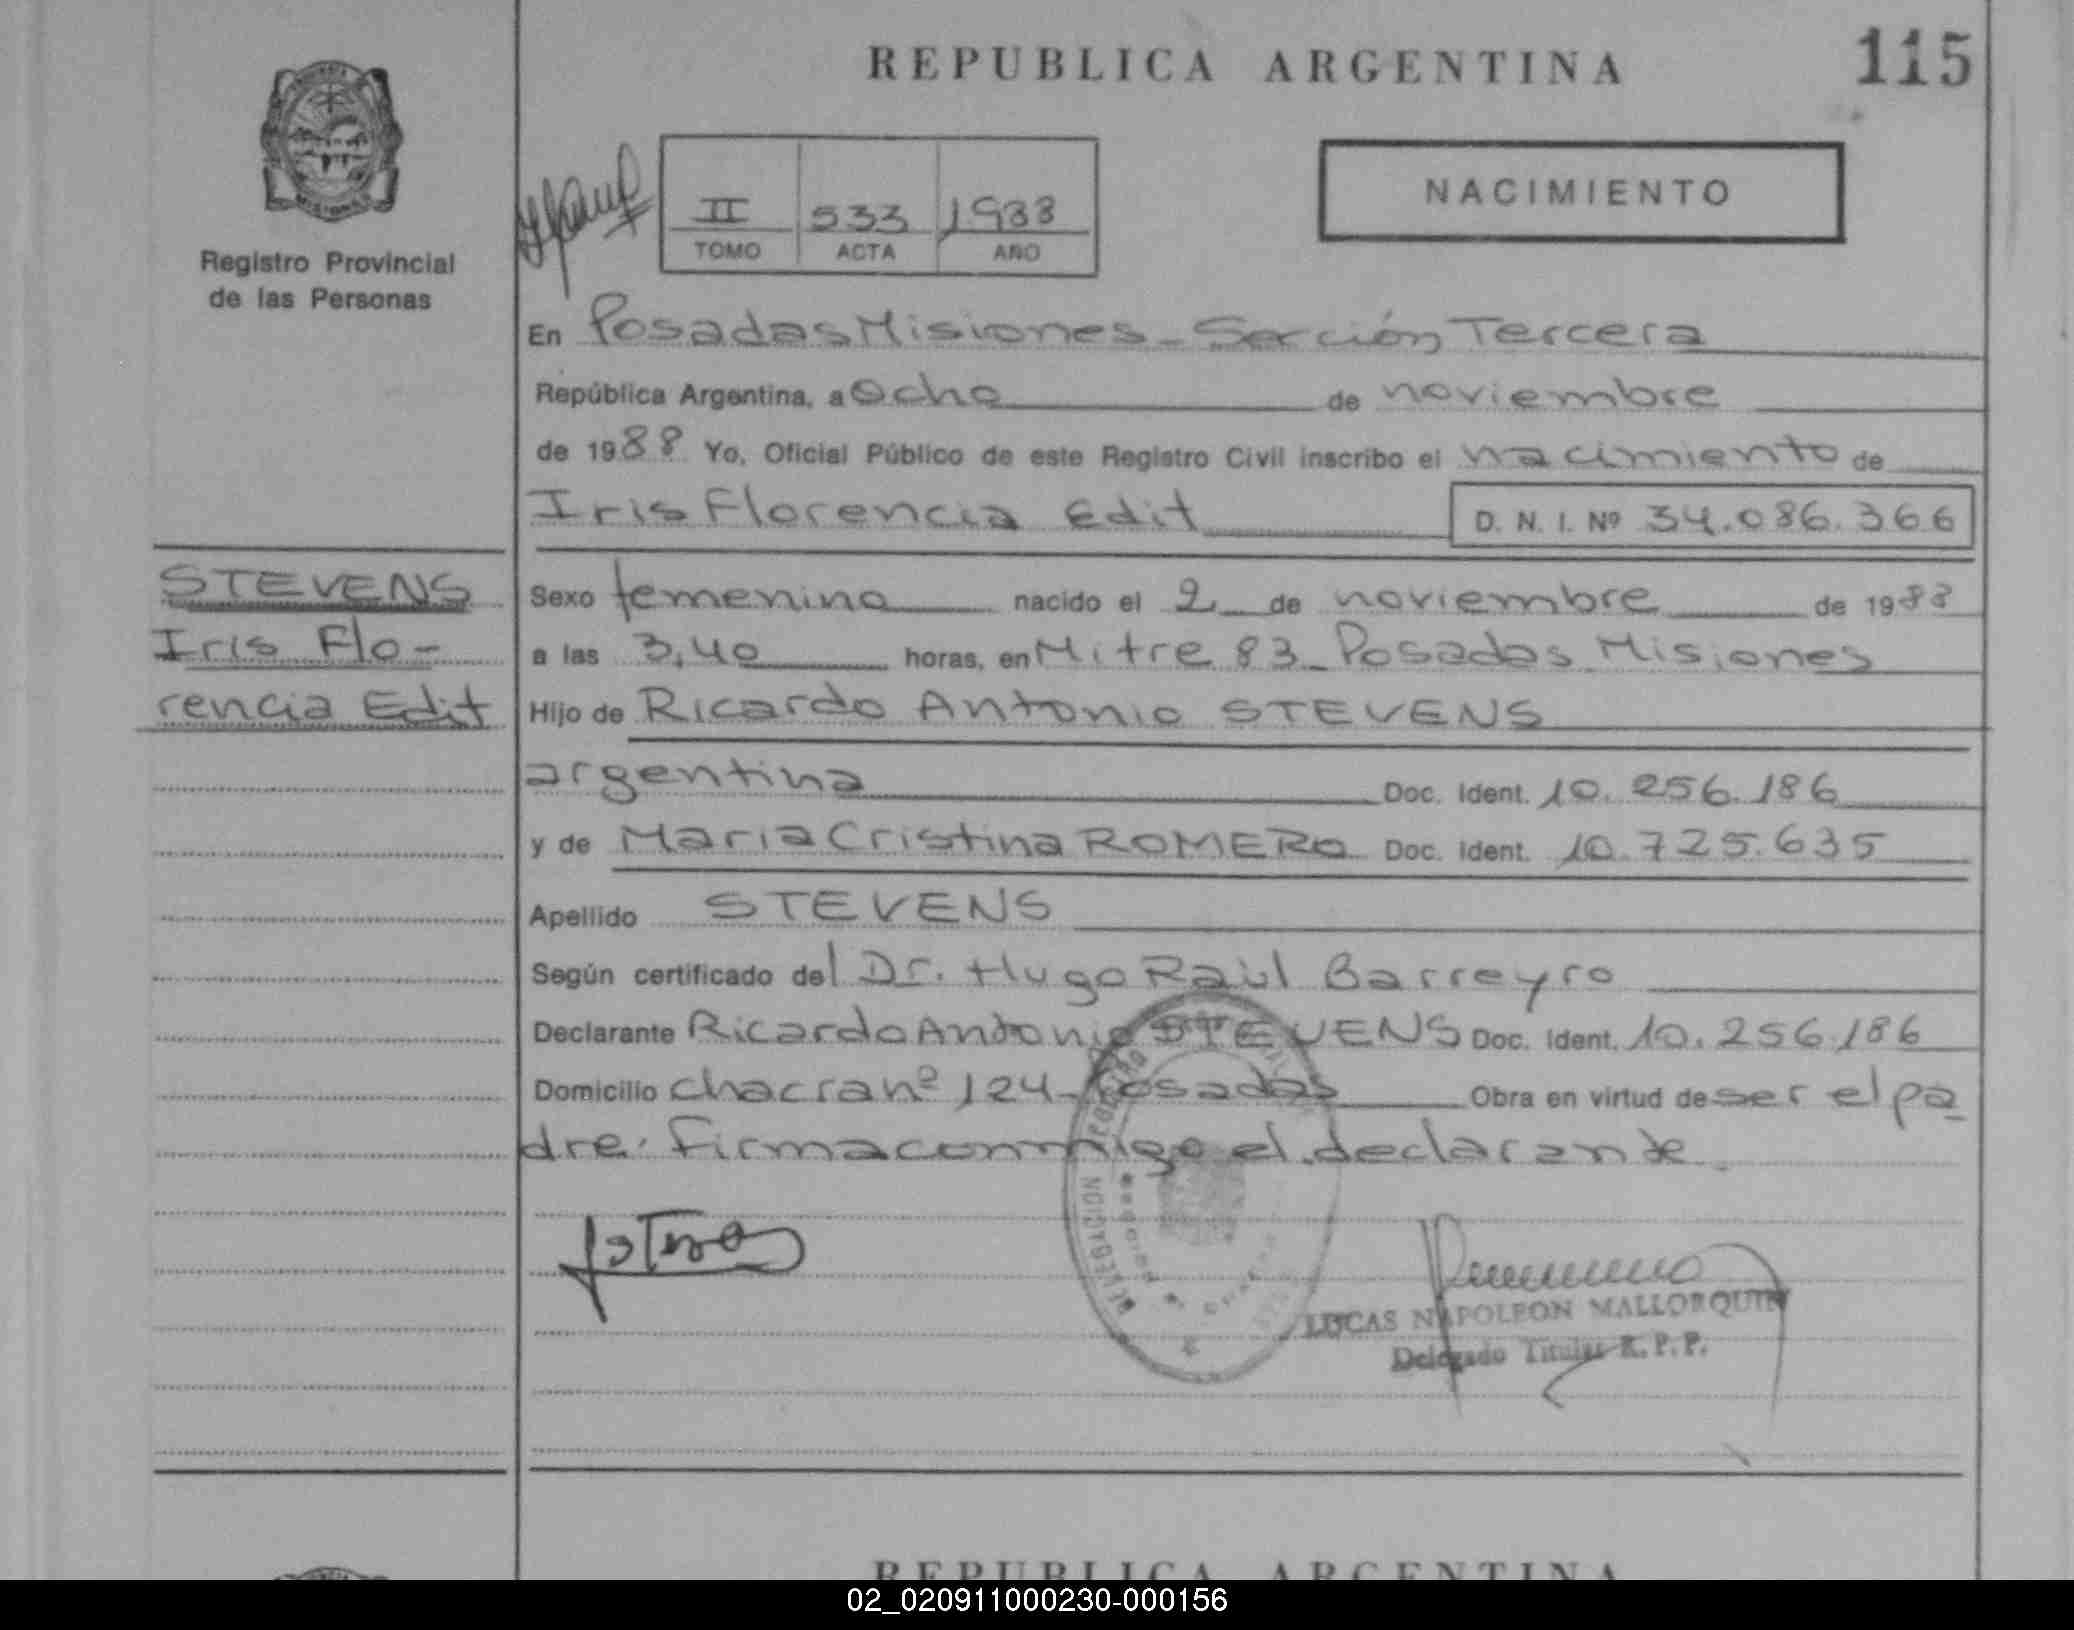 REPUBLICA ARGENTINA
115
Registro Provincial
de las Personas
II 533 1988
TOMO ACTA AÑO
NACIMIENTO
En Posadas Misiones - Sección Tercera
República Argentina, a Ocho de noviembre
de 1988 Yo, Oficial Público de este Registro Civil inscribo el nacimiento de
Iris Florencia Edit D. N. I. Nº 34.086.366
STEVENS
Iris Flo-
rencia Edit
Sexo femenino nacido el 2 de noviembre de 1988
a las 3,40 horas, en Mitre 83 - Posadas Misiones
Hijo de Ricardo Antonio STEVENS
argentina Doc. Ident. 10.256.186
y de Maria Cristina ROMERO Doc. Ident. 10.725.635
Apellido STEVENS
Según certificado del Dr. Hugo Raúl Barreyro
Declarante Ricardo Antonio STEVENS Doc. Ident. 10.256.186
Domicilio chacra nº 124 - Posadas Obra en virtud de ser el pa
dre. Firma conmigo el declarante
LUCAS NAPOLEON MALLORQUIN
Delegado Titular R. P. P.
REPUBLICA ARGENTINA
02_020911000230-000156